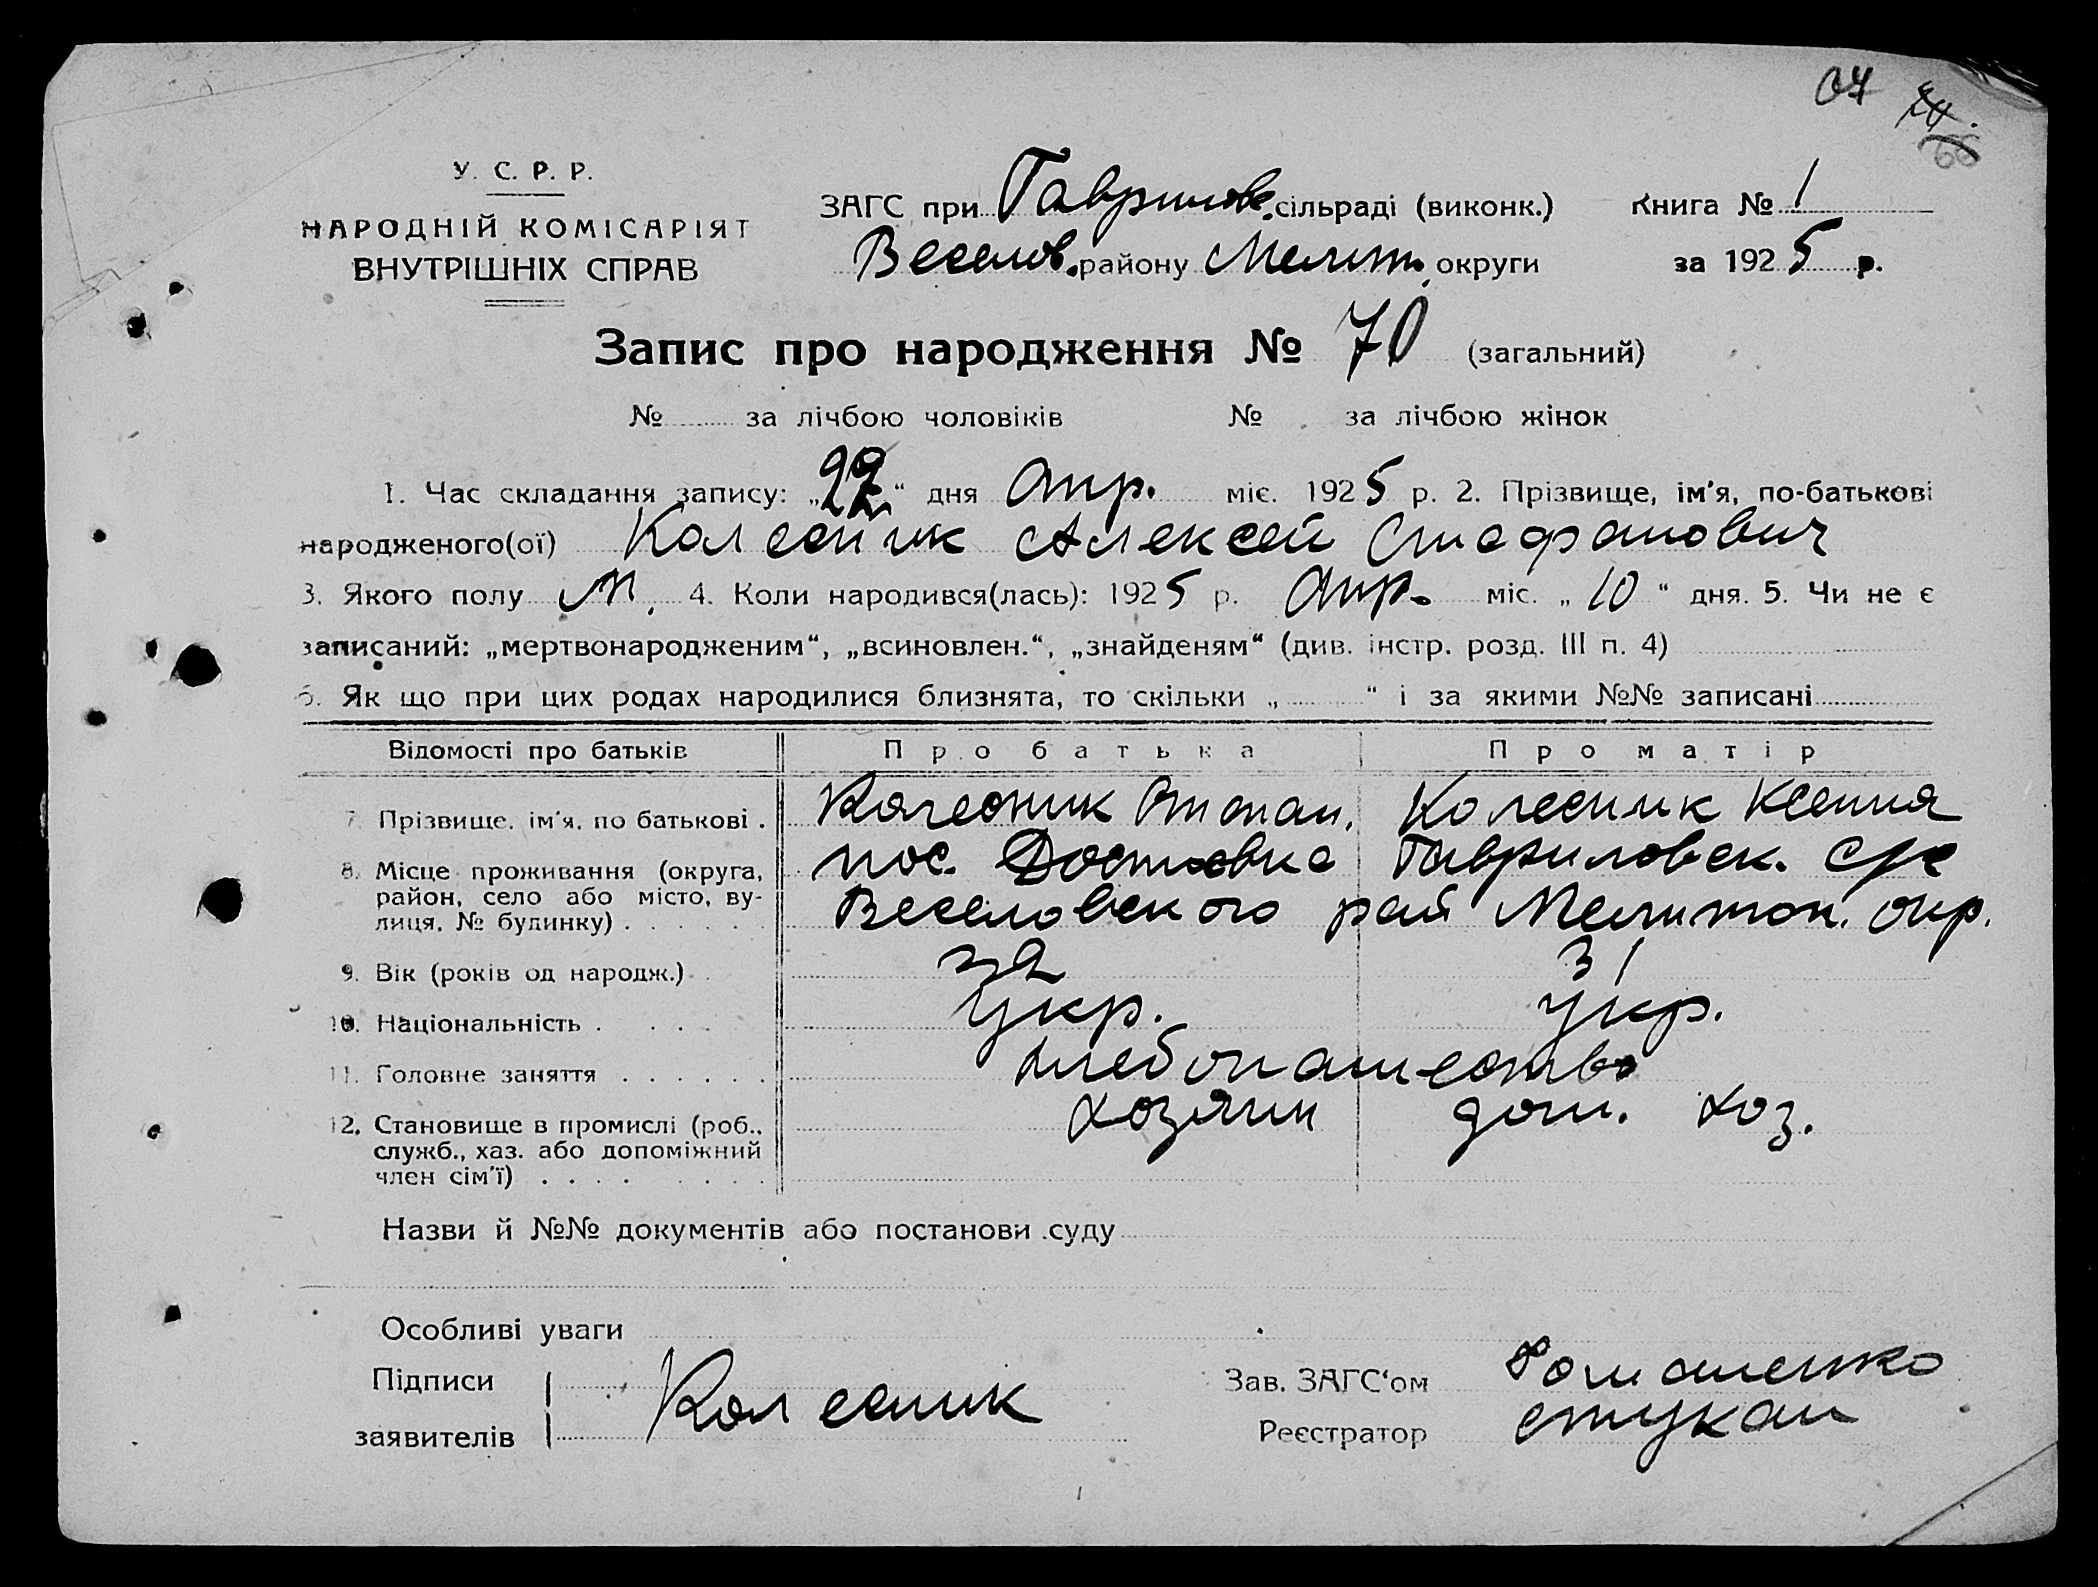 07
66
У. С. Р. Р.
НАРОДНІЙ КОМІСАРІЯТ
ВНУТРІШНІХ СПРАВ
ЗАГС при Гаврилов. сільраді (виконк.) Книга № 1
Веселов. району Мелит. округи за 1925 р.
Запис про народження № 70 (загальний)
№ за лічбою чоловіків № за лічбою жінок
1. Час складання запису: „22“ дня Апр. міс. 1925 р. 2. Прізвище, ім'я, по-батькові
народженого(ої) Колесник Алексей Стефанович
3. Якого полу М. 4. Коли народився(лась): 1925 р. Апр. міс. „10“ дня. 5. Чи не є
записаний: „мертвонародженим“, „всиновлен.“, „знайденям“ (див. інстр. розд. III п. 4)
6. Як що при цих родах народилися близнята, то скільки „ “ і за якими №№ записані
Відомості про батьків Про батька Про матір
7. Прізвище, ім'я, по батькові . Колесник Степан. Колесник Ксения
8. Місце проживання (округа, район, село або місто, вулиця, № будинку) . . . . . . пос. Гавриловск. с/с
Веселовского рай Мелитоп. окр.
9. Вік (років од народж.) . 32 31
10. Національність . . . . Укр. Укр.
11. Головне заняття . . . . . . хлебопашество
12. Становище в промислі (роб., служб., хаз. або допоміжний член сім'ї) . . . . . . . . хозяин дом. хоз.
Назви й №№ документів або постанови суду
Особливі уваги
Підписи заявителів Колесник
Зав. ЗАГС'ом Романенко
Реєстратор Стукан